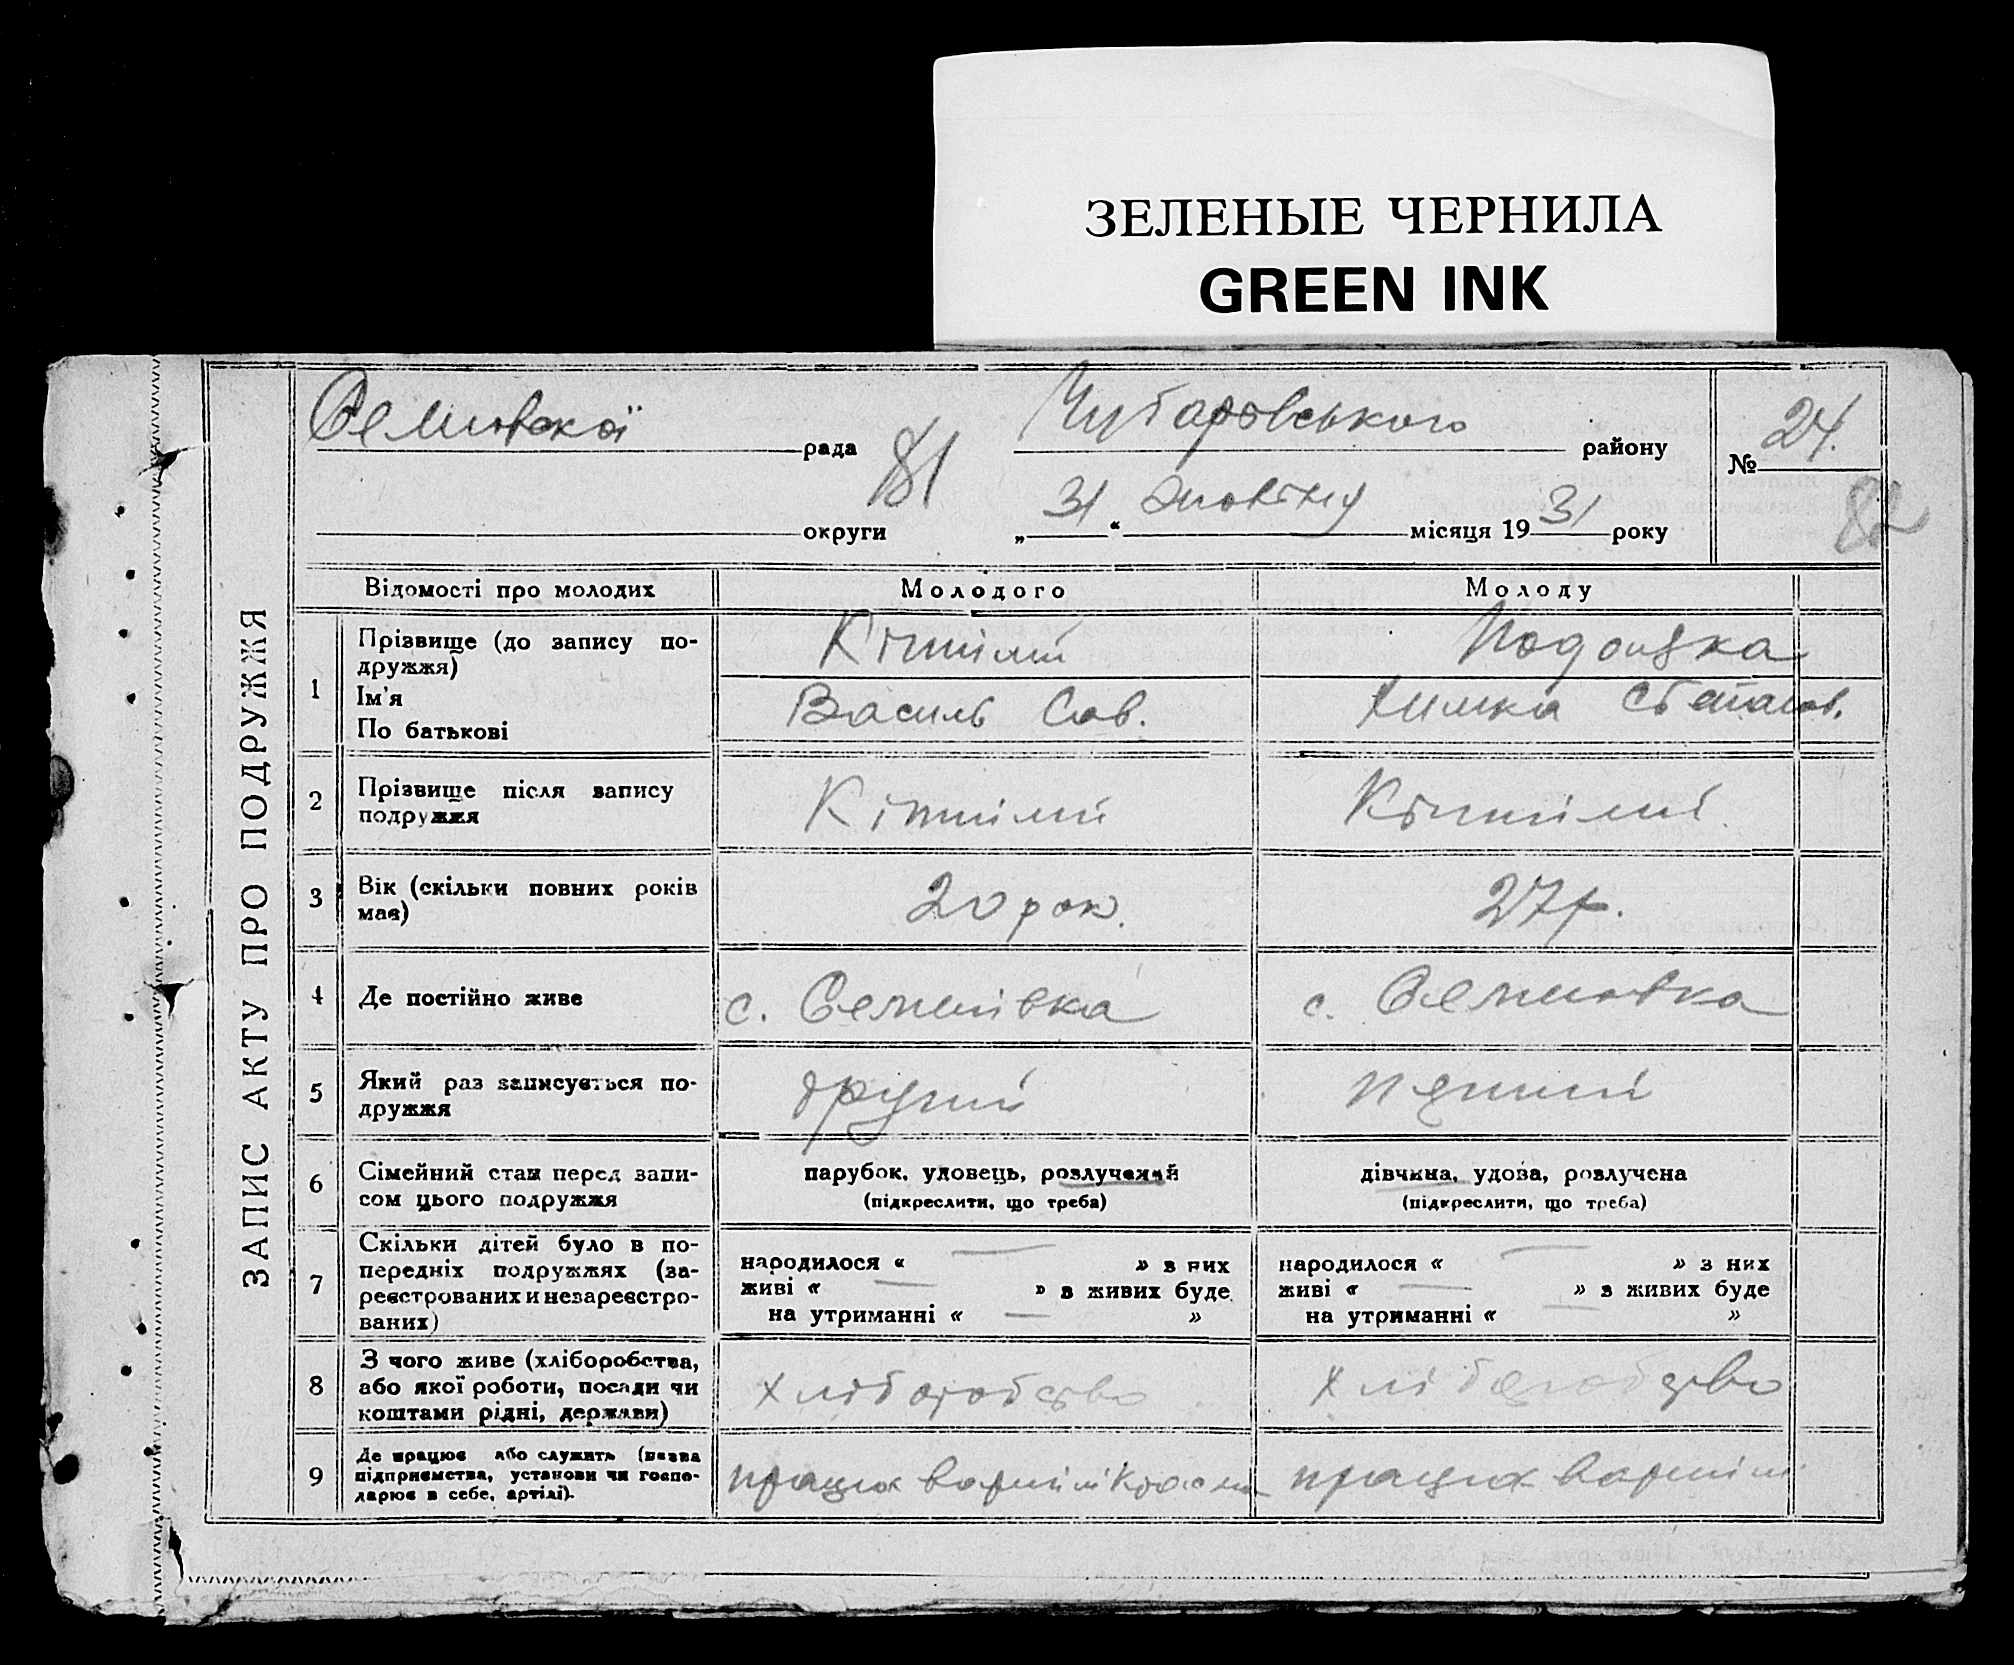 ЗЕЛЕНЫЕ ЧЕРНИЛА
GREEN INK
ЗАПИС АКТУ ПРО ПОДРУЖЖЯ
рада
81
району
№ 24.
округи
„ 31 “ жовтня місяця 19 31 року
82
Відомості про молодих
Молодого
Молоду
1
Прізвище (до запису по-
дружжя)
Ім'я
По батькові
Василь Сав.
Химка Степанов.
2
Прізвище після запису
подружжя
3
Вік (скільки повних років
має)
20 рок.
27 р.
4
Де постійно живе
с. Семенівка
с. Семеновка
5
Який раз записується по-
дружжя
другий
6
Сімейний стан перед запи-
сом цього подружжя
парубок, удовець, розлучений
(підкреслити, що треба)
дівчина, удова, розлучена
(підкреслити, що треба)
7
Скільки дітей було в по-
передніх подружжях (за-
реєстрованих и незареєстро-
ваних)
народилося « — » з них
живі « — » з живих буде
на утриманні « — »
народилося « — » з них
живі « — » з живих буде
на утриманні « — »
8
З чого живе (хліборобства,
або якої роботи, посади чи
коштами рідні, держави)
хліборобство
хліборобство
9
Де працює або служить (назва
підприємства, установи чи госпо-
дарює в себе, артілі).
працює в артілі
працює в артілі